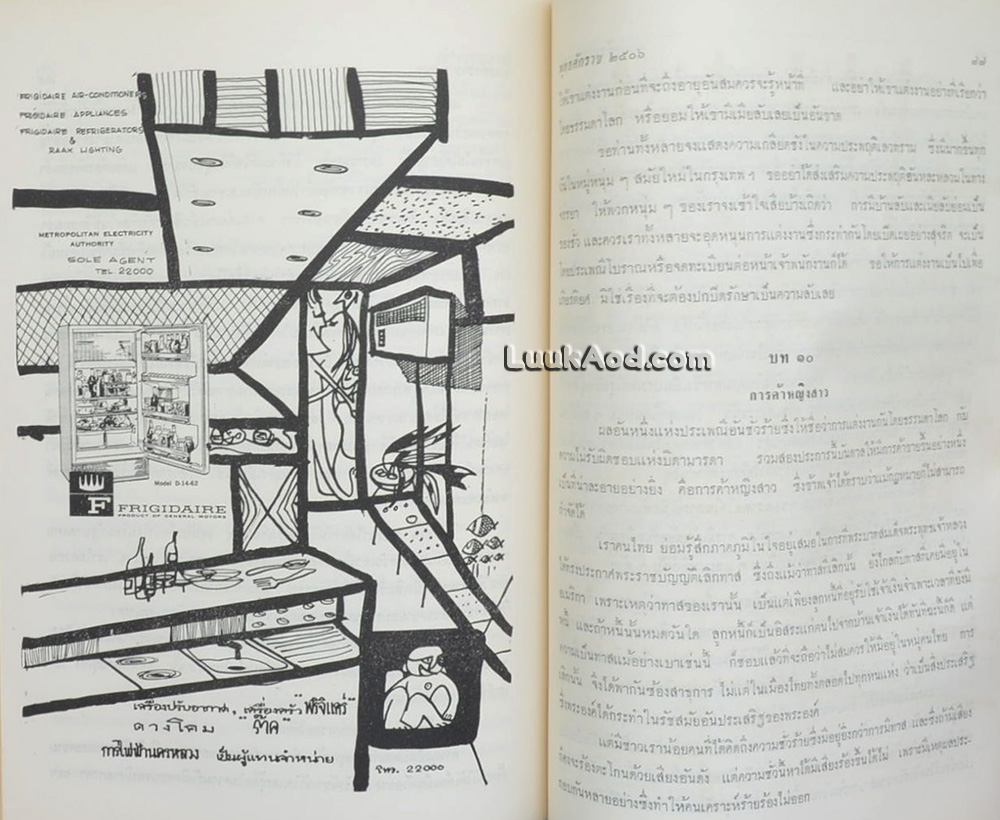 FRIGIDAIRE AIR-CONDITIONERS
FRIGIDAIRE APPLIANCES
FRIGIDAIRE REFRIGERATORS
&
RAAK LIGHTING
METROPOLITAN ELECTRICITY
AUTHORITY
SOLE AGENT
TEL. 22000
Model D-14-62
F FRIGIDAIRE
PRODUCT OF GENERAL MOTORS
เครื่องปรับอากาศ, เครื่องครัว "ฟริจิแดร์"
ดวงโคม "ร๊าค"
การไฟฟ้านครหลวง เป็นผู้แทนจำหน่าย
โทร. 22000
พุทธศักราช ๒๕๐๖
ให้เขาแต่งงานก่อนที่จะถึงอายุอันสมควรจะรู้หน้าที่ และอย่าให้เขาแต่งงานอย่างที่เรียกว่า
โดยธรรมดาโลก หรือยอมให้เขามีเมียลับเลยเป็นอันขาด
ขอท่านทั้งหลายจงแสดงความเกลียดชังในความประพฤติเลวทราม ซึ่งมีมากขึ้นทุก
วันในหมู่หนุ่ม ๆ สมัยใหม่ในกรุงเทพ ฯ ขออย่าได้ส่งเสริมความประพฤติอันเหละหลวมในทาง
จรรยา ให้พวกหนุ่ม ๆ ของเราจงเข้าใจเสียบ้างเถิดว่า การมีบ้านลับและเมียลับย่อมเป็น
ของชั่ว และควรเราทั้งหลายจะอุดหนุนการแต่งงานซึ่งกระทำกันโดยเปิดเผยอย่างสุจริต จะเป็น
โดยประเพณีโบราณหรือจดทะเบียนต่อหน้าเจ้าพนักงานก็ได้ ขอให้การแต่งงานเป็นไปเพื่อ
เกียรติยศ มิใช่เรื่องที่จะต้องปกปิดรักษาเป็นความลับเลย
LuukAod.com
บท ๑๐
การค้าหญิงสาว
ผลอันหนึ่งแห่งประเพณีอันชั่วร้ายซึ่งให้ชื่อว่าการแต่งงานกันโดยธรรมดาโลก กับ
ความไม่รับผิดชอบแห่งบิดามารดา รวมสองประการนี้บันดาลให้มีการค้าขายขึ้นอย่างหนึ่ง
เป็นที่น่าละอายอย่างยิ่ง คือการค้าหญิงสาว ซึ่งข้าพเจ้าได้ทราบว่าแม้กฎหมายก็ไม่สามารถ
กำจัดได้
เราคนไทย ย่อมรู้สึกภาคภูมิในใจอยู่เสมอในการที่พระบาทสมเด็จพระพุทธเจ้าหลวง
ได้ทรงประกาศพระราชบัญญัติเลิกทาส ซึ่งถึงแม้ว่าทาสที่เลิกนั้น ยังไกลกับทาสที่เคยมีอยู่ใน
อเมริกา เพราะเหตุว่าทาสของเรานั้น เป็นแต่เพียงลูกหนี้อยู่รับใช้เจ้าเงินจำเพาะเวลาที่ยังมี
หนี้ และถ้าหนี้นั้นหมดวันใด ลูกหนี้ก็เป็นอิสระแก่ตนไปจากบ้านเจ้าเงินได้ทันทีฉะนั้นก็ดี แต่
ความเป็นทาสแม้อย่างเบาเช่นนี้ ก็ชอบแล้วที่จะถือว่าไม่สมควรให้มีอยู่ในหมู่คนไทย การ
เลิกนั้น จึงได้พากันซ้องสาธุการ ไม่แต่ในเมืองไทยทั้งตลอดไปทุกหนแห่ง ว่าเป็นสิ่งประเสริฐ
ซึ่งพระองค์ได้กระทำในรัชสมัยอันประเสริฐของพระองค์
แต่มีชาวเราน้อยคนที่ได้คิดถึงความชั่วร้ายซึ่งมีอยู่ยิ่งกว่าการมีทาส และซึ่งถ้ามีเสียง
ก็คงจะร้องตะโกนด้วยเสียงอันดัง แต่ความชั่วนี้หาได้มีเสียงร้องขึ้นได้ไม่ เพราะมีเหตุผลประ-
กอบกันหลายอย่างซึ่งทำให้คนเคราะห์ร้ายร้องไม่ออก